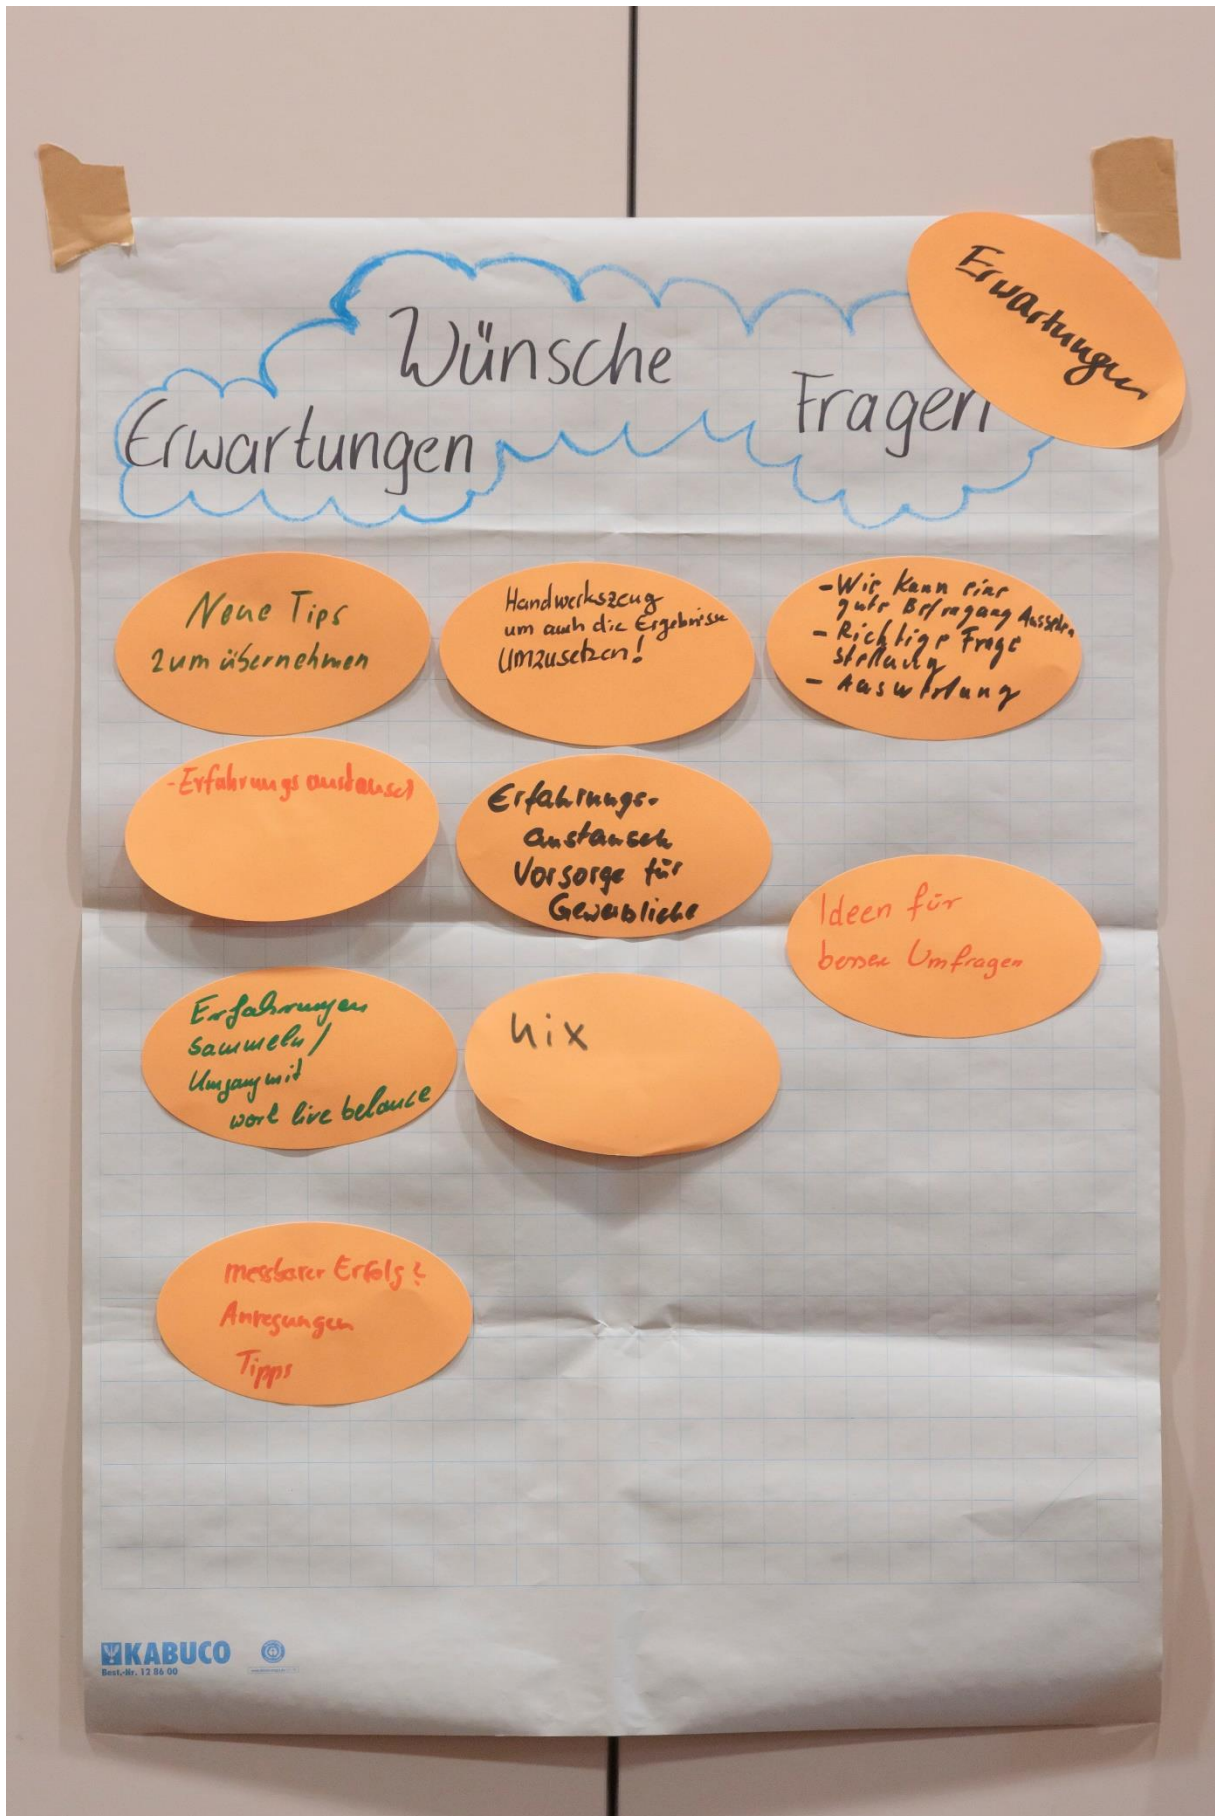 Wünsche
Erwartungen
Fragen
Erwartungen
Neue Tips
zum übernehmen
Handwerkszeug
um auch die Ergebnisse
Umzusetzen!
- Wie kann eine
gute Befragung Aussehen
- Richtige Frage
stellung
- Auswertung
- Erfahrungsaustausch
Erfahrungs-
austausch
Vorsorge für
Gewerbliche
Ideen für
bessere Umfragen
Erfahrungen
sammeln/
Umgang mit
work live balance
nix
messbarer Erfolg?
Anregungen
Tipps
KABUCO
Best.-Nr. 12 86 00